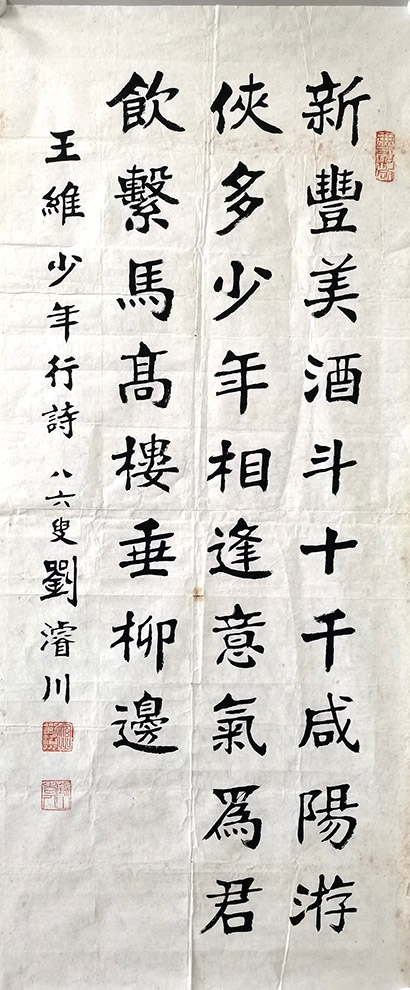 新豐美酒斗十千咸陽游
俠多少年相逢意氣爲君
飲繫馬高樓垂柳邊
王維少年行詩 八六叟劉濬川